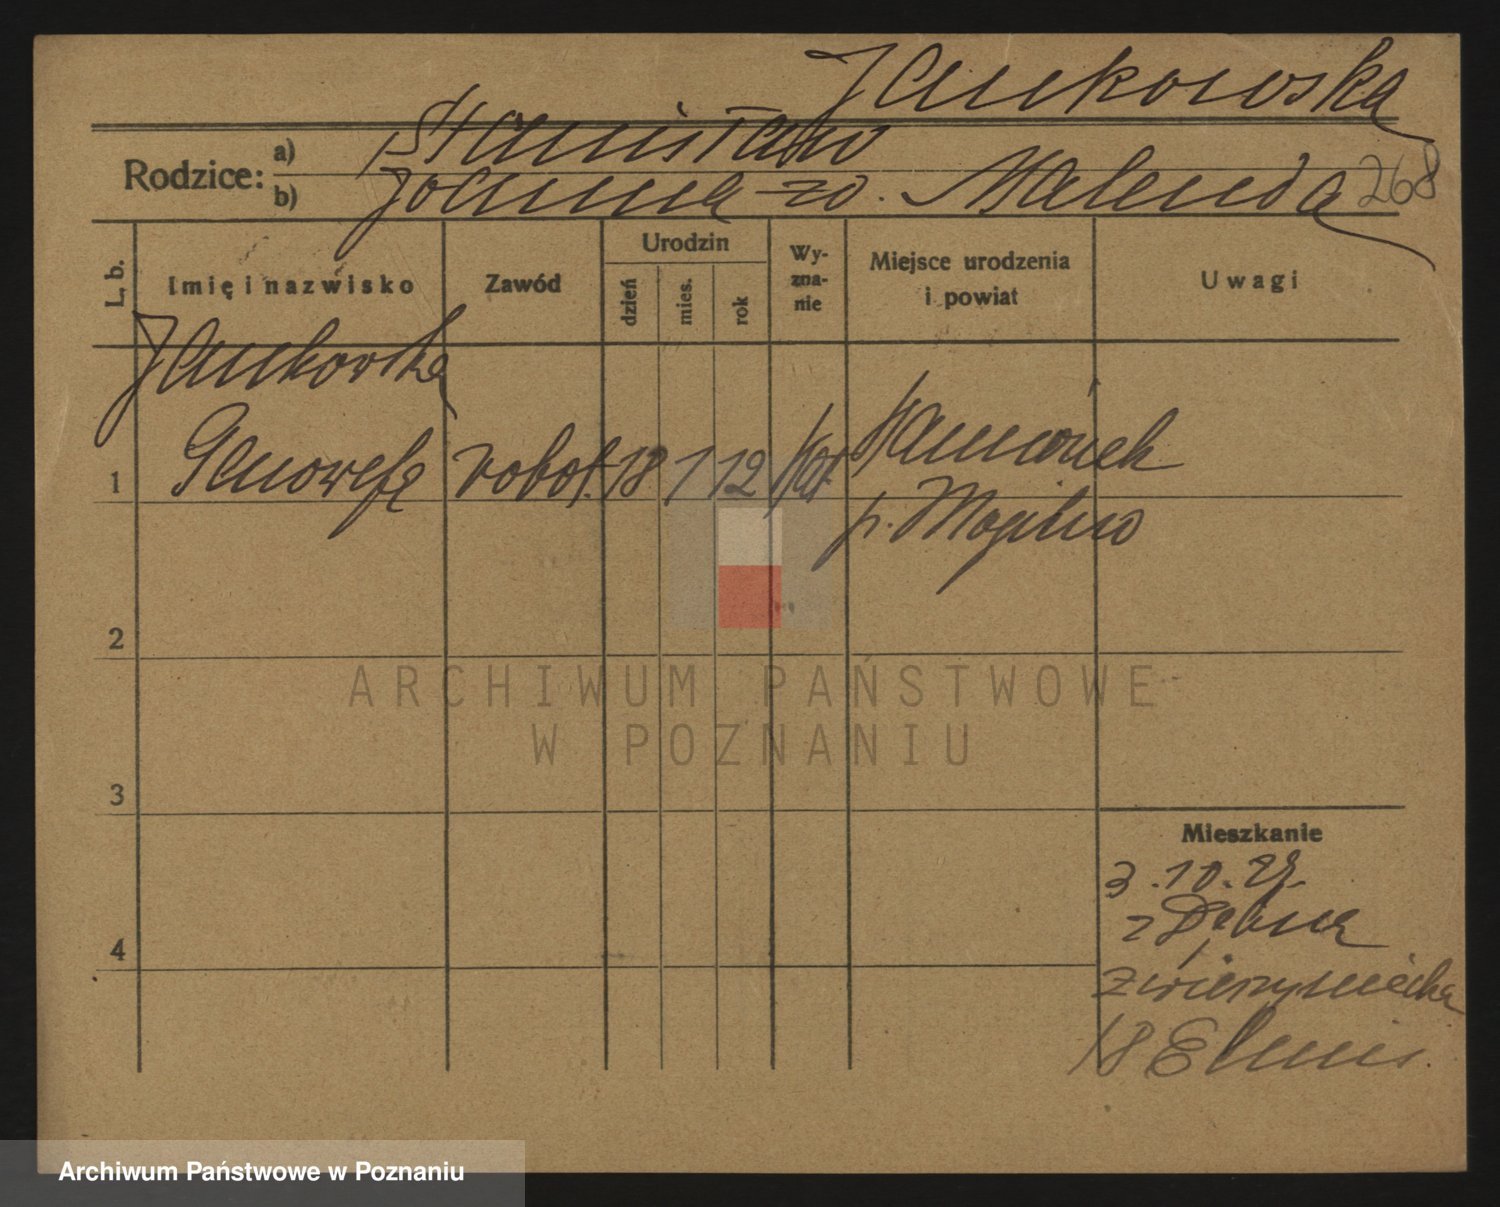 Jankowska
Rodzice: a) Stanisław
b) Joanna zd. Malenda 268
L. b.
Imię i nazwisko
Zawód
Urodzin
dzień
mies.
rok
Wy-
zna-
nie
Miejsce urodzenia
i powiat
Uwagi
Jankowska
1 Genowefa robot. 18 1 12 kat. Kamionek
p. Mogilno
2
3
4
Mieszkanie
3.10.29.
z Dębna
Zwierzyniecka
18
ARCHIWUM PAŃSTWOWE
W POZNANIU
Archiwum Państwowe w Poznaniu